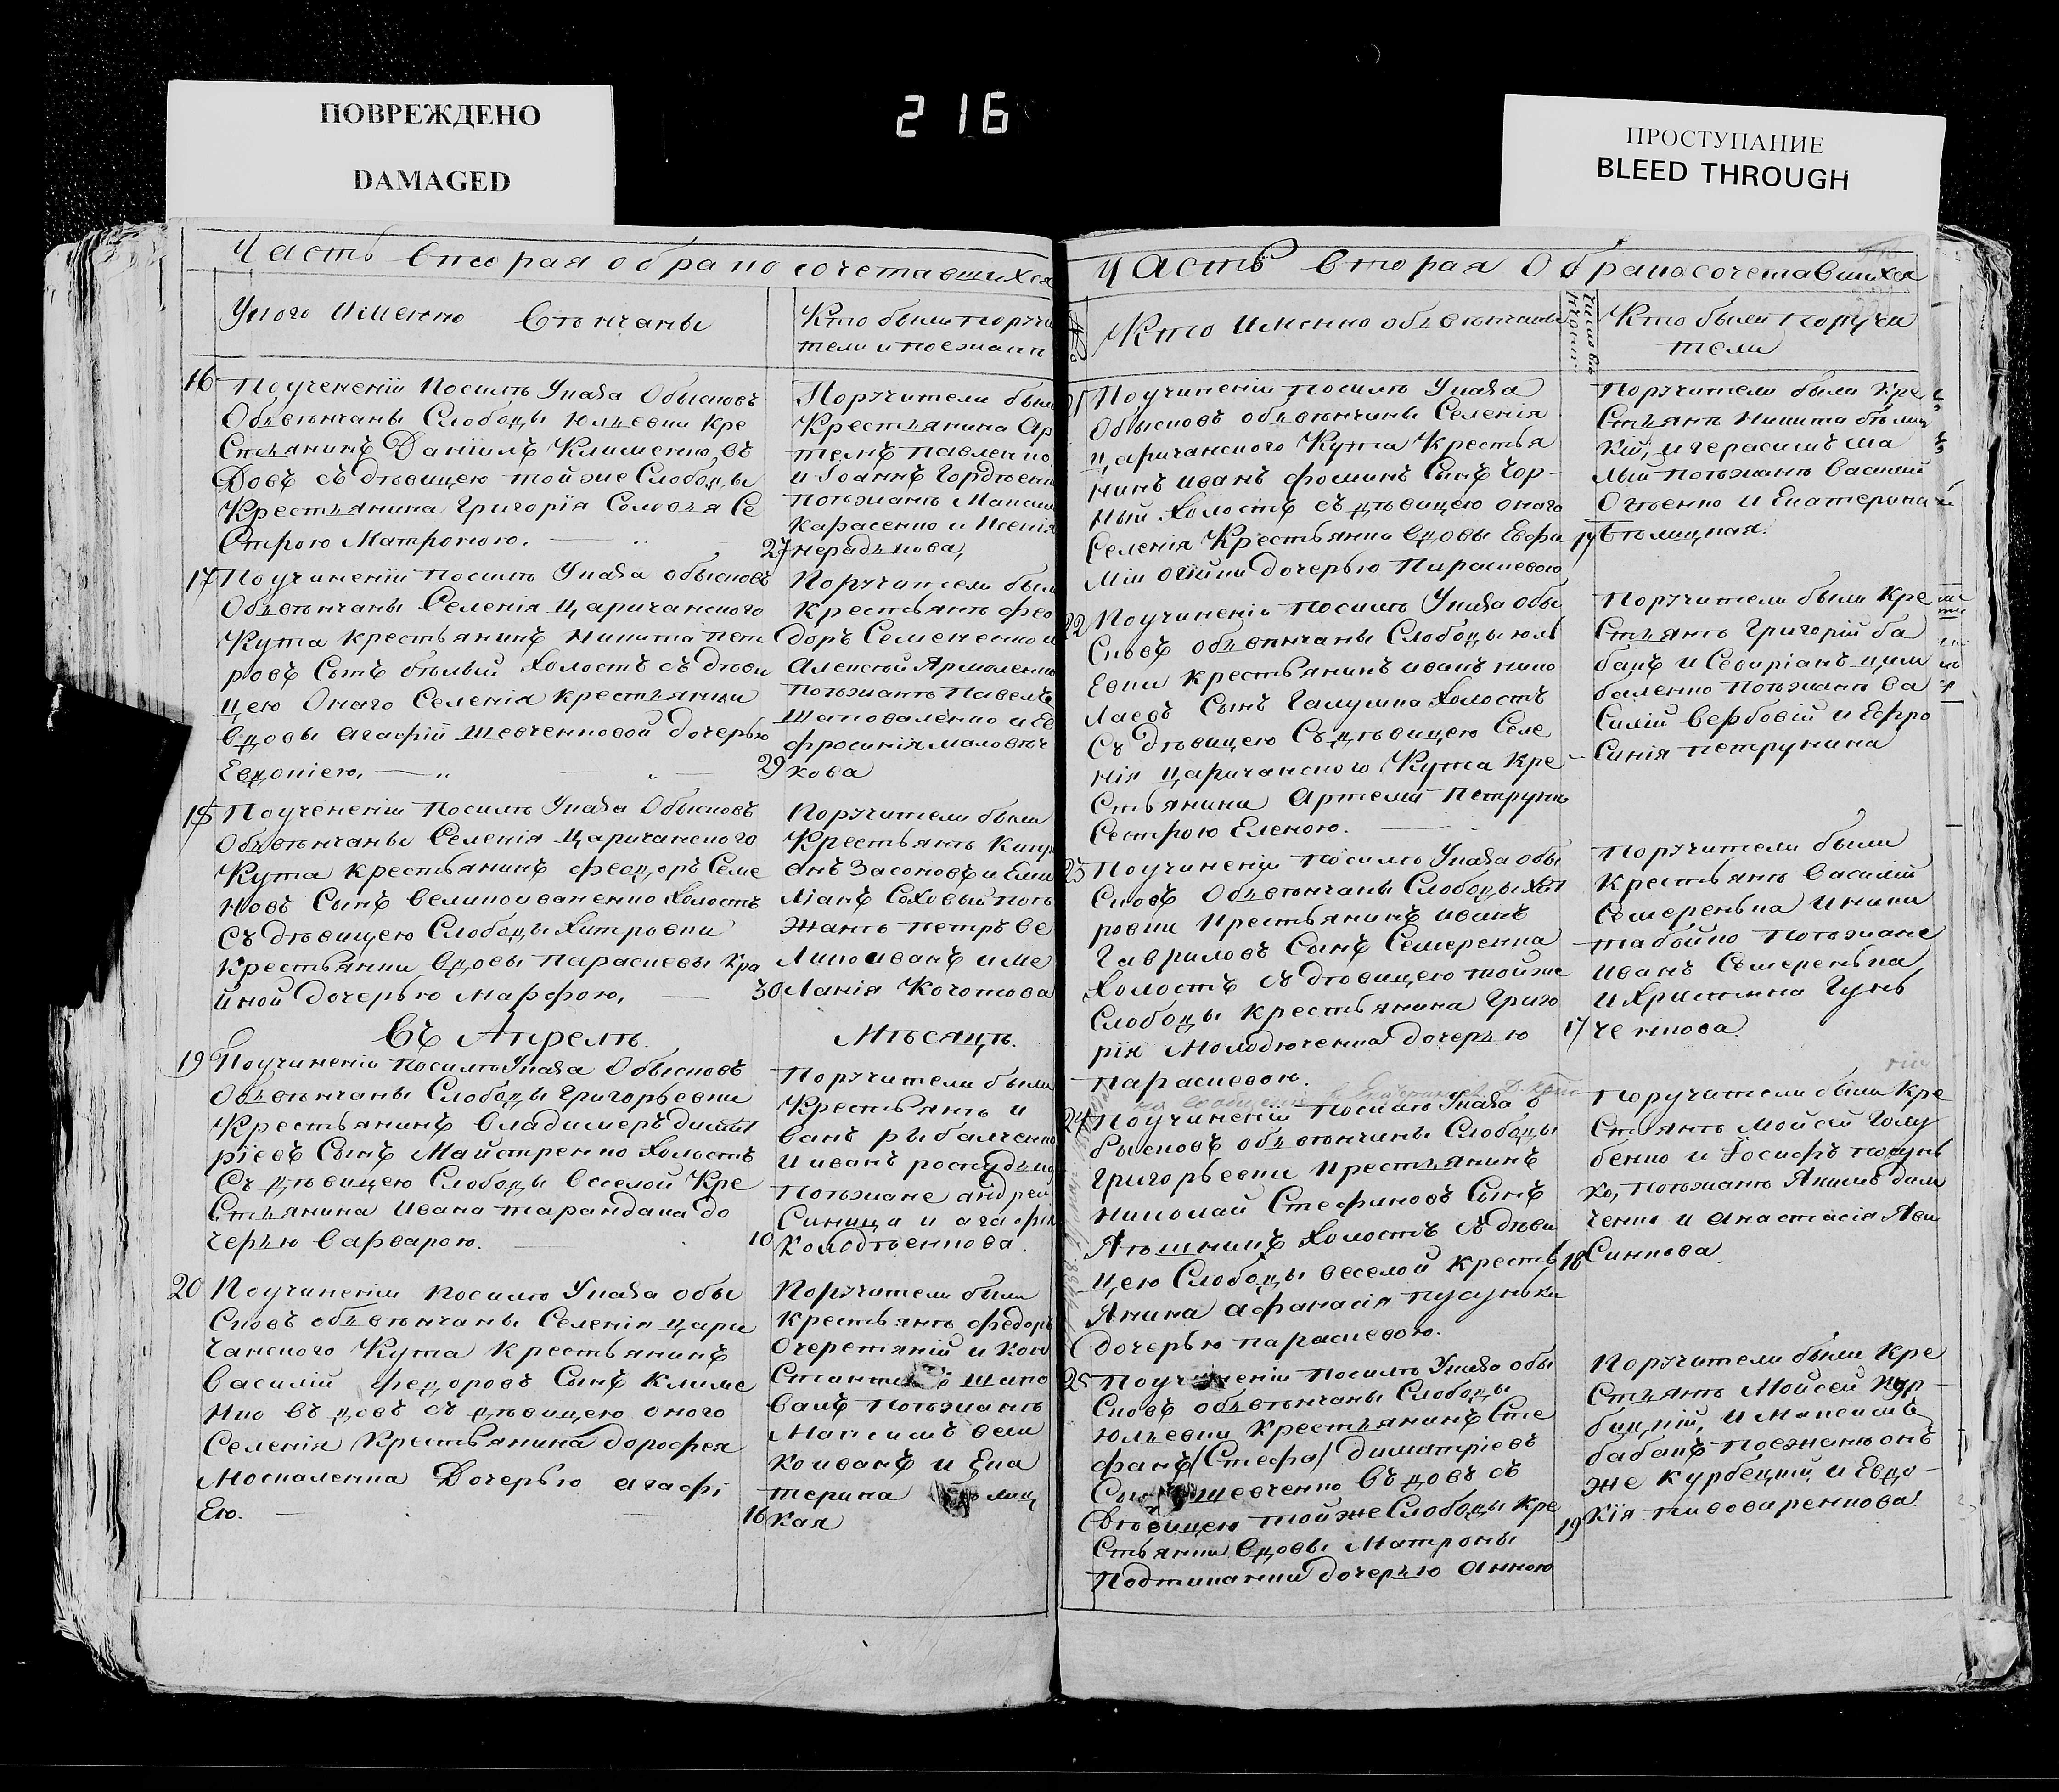 ПОВРЕЖДЕНО
DAMAGED
216
ПРОСТУПАНИЕ
BLEED THROUGH
Часть вторая о бракосочетавшихся
Кого именно Вѣнчаны
Кто были поручи
тели и поезжанѣ
16 По учененіи посилѣ Указа Обысковъ
Обвѣнчаны Слободы Юльевки Кре
стьянинъ Даніилъ Клименко, въ
довъ съ дѣвицею той же Слободы
Крестьянина Григорія Соловья Се
строю Матроною.
27
Поручители были
Крестьянина Ар
темъ Павленко
и Іоаннъ Гордѣенко
Поѣзжанѣ Максим
Карасенко и Ксенія
17 По учиненіи посилѣ Указа обысковъ
Обвѣнчаны Селенія Царичанского
Кута крестьянинъ Никита Пет
ровъ Сынъ бѣлый холостъ съ дѣви
цею Онаго Селенія крестьянки
вдовы Агафіи Шевченковой дочерью
Евдокіею,
29
Поручители был
крестьянѣ Фео
доръ Семененко и
Алексѣй Ярмоленко
поѣзжанѣ Павелъ
Шаповаленко и Ев
фросинія
кова
18 По учененіи посилѣ Указа Обысковъ
Обвѣнчаны Селенія Царичанского
Кута крестьянинъ Феодоръ Семе
новъ Сынъ Великоиваненко холостъ
съ дѣвицею Слободы Хитровки
Крестьянки вдовы Парасковы Кра
йной дочерью Марфою,
30
Поручители были
Крестьянѣ Кипр
анъ Засоновъ и Еми
ліанъ Соховый поѣ
жанѣ Петръ Ве
ликоиванъ и ме
ланія Кочотова
Въ Апрелѣ. Мѣсяцѣ.
19 По учиненіи посилѣ Указа Обысковъ
Обвѣнчаны Слободы Григорьевки
Крестьянинъ Владимеръ Димит
ріевъ Сынъ Майстренко холостъ
съ дѣвицею Слободы Веселой Кре
стьянина Ивана Тарандана до
черью Варварою.
10
Поручители были
Крестьянѣ и
ванъ Рыбалченко
и иванъ
поѣзжане андрей
Синица и агафія
Колодѣенкова.
20 По учиненіи посилѣ Указа обы
сковъ обвѣнчаны Селенія Цари
чанского Кута крестьянинъ
Василій Федоровъ Сынъ Климе
нко въдовъ съ дѣвицею оного
Селенія Крестьянина Дорофея
Москаленка Дочерью Агафі
Ею.
16
Поручители были
крестьянѣ Федоръ
Очеретяній и Кон
шапо
валъ поѣзжанѣ
Максимъ вели
коиванъ и Ека
терина
кая
Часть вторая О бракосочетавшихся
Кто именно обвѣнчаны
Кто были поручи
тели
По учиненіи посилѣ Указа
Обысковъ обвѣнчаны Селенія
Царичанского Кута Крестья
нинъ иванъ Фоминъ Сынъ Чор-
ный холостъ съ дѣвицею онаго
Селенія Крестьянки вдовы Евфи
міи дочерью Параскевою
17
Поручители были Кре
стьянѣ Никита бѣлиц
кій, и герасимъ ма
лый поѣзжанѣ Василій
Огіенко и Екатерина
Бѣлицкая.
22 По учиненіи посилѣ Указа обы
сковъ обвѣнчаны Слободы Юль
евки крестьянинъ иванъ нико
лаевъ Сынъ Галушка холостъ
съ дѣвицею съ дѣвицею Селе
нія Царичанского Кута Кре
стьянина Артема Петруни
Сестрою Еленою.
Поручители были Кре
стьянѣ Григорій ба
банъ и Севиріанъ цим
баленко поѣзжанѣ Ва
силій Вербовій и Ефро
синія Петрунина
23 По учиненіи посилѣ Указа обы
сковъ Обвѣнчаны Слободы Хит
ровки крестьянинъ иванъ
Гавриловъ Сынъ Семеренка
холостъ съ дѣвицею той же
Слободы крестьянина Григо
рія Молодюченка дочерью
Параскевою.
17
Поручители были
крестьянѣ Василій
Семеренька и ники
та бойко поѣзжане
иванъ Семеренька
и Христина Гунь
ченкова.
24 По учиненіи посилѣ Указа о
бысковъ обвѣнчаны Слободы
Григорьевки крестьянинъ
Николай Стефановъ Сынъ
холостъ съ дѣви
цею Слободы веселой Кресть
янина Афанасія
дочерью Параскевою.
18
Поручители были Кре
стьянѣ Мойсей Голу
бенко и Іосифъ
ко, поѣзжанѣ Якимъ
ченко и Анастасія
Синкова.
25 По учиненіи посилѣ Указа обы
сковъ обвѣнчаны Слободы
Юльевки Крестьянинъ Сте
фанъ (Стефа) Димитріевъ
Сынъ Шевченко въдовъ съ
дѣвицею той же Слободы кре
стьянки вдовы Матроны
дочерью Анною
19
Поручители были Кре
стьянѣ Мойсей Кур-
бацкій, и Максимъ
бабанъ поезжанѣ онъ
же Курбецкій и Евдо-
кія Пивоваренкова.